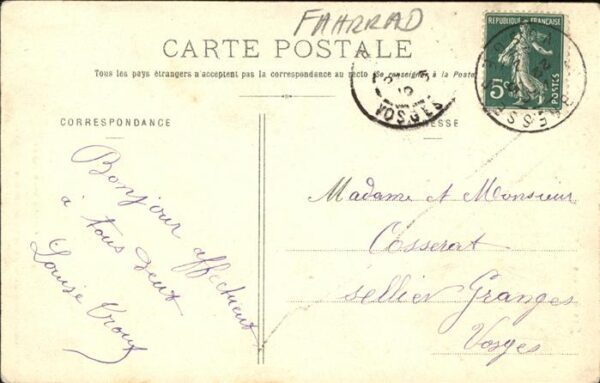 FAHRRAD
CARTE POSTALE
Tous les pays étrangers n'acceptent pas la correspondance au recto (Se renseigner à la Poste)
REPUBLIQUE FRANÇAISE
5c
POSTES
VOSGES
CORRESPONDANCE
ESSE
Bonjour affectueux
à tous deux
Louise
Madame et Monsieur
Cosserat
sellier Granges
Vosges